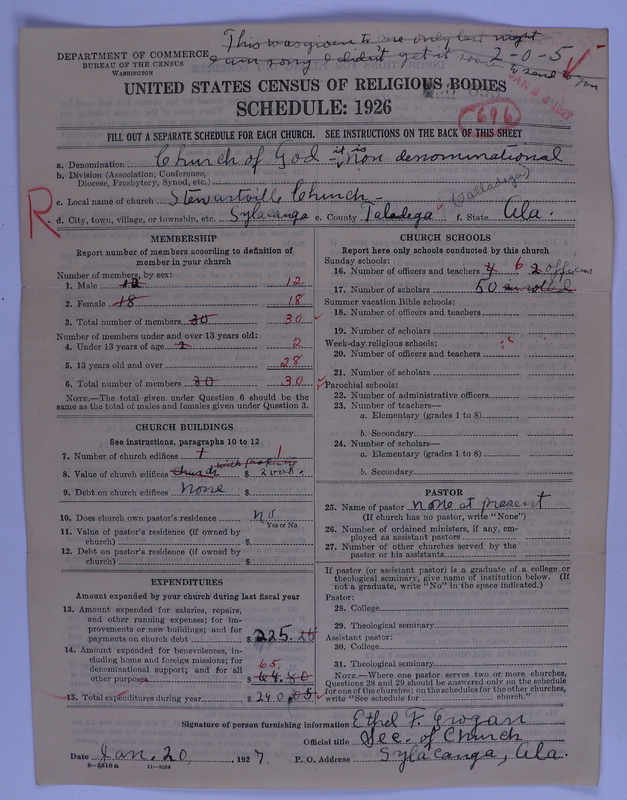 This was given to me only last night
I am sorry I didn't get it soon
to send to you
2-0-5
DEPARTMENT OF COMMERCE
BUREAU OF THE CENSUS
WASHINGTON
UNITED STATES CENSUS OF RELIGIOUS BODIES
SCHEDULE: 1926
696
FILL OUT A SEPARATE SCHEDULE FOR EACH CHURCH. SEE INSTRUCTIONS ON THE BACK OF THIS SHEET
R
a. Denomination Church of God - it is non denominational
b. Division (Association, Conference, Diocese, Presbytery, Synod, etc.)
c. Local name of church Stewartville Church - (Talladega)
d. City, town, village, or township, etc. Sylacanga e. County Taladega f. State Ala.
MEMBERSHIP
Report number of members according to definition of
member in your church
Number of members, by sex:
1. Male 12 12
2. Female 18 18
3. Total number of members 30 30
Number of members under and over 13 years old:
4. Under 13 years of age 2 2
5. 13 years old and over 28
6. Total number of members 30 30
NOTE.—The total given under Question 6 should be the
same as the total of males and females given under Question 3.
CHURCH BUILDINGS
See instructions, paragraphs 10 to 12
7. Number of church edifices 1 1
8. Value of church edifices Church with property $ 2000.
9. Debt on church edifices None $
10. Does church own pastor's residence No
Yes or No
11. Value of pastor's residence (if owned by
church) $
12. Debt on pastor's residence (if owned by
church) $
EXPENDITURES
Amount expended by your church during last fiscal year
13. Amount expended for salaries, repairs,
and other running expenses; for im-
provements or new buildings; and for
payments on church debt $ 225.25
14. Amount expended for benevolences, in-
cluding home and foreign missions; for
denominational support; and for all
other purposes $ 65.
15. Total expenditures during year $ 290.05
CHURCH SCHOOLS
Report here only schools conducted by this church
Sunday schools:
16. Number of officers and teachers 4 6 2 officers
17. Number of scholars 50 enrolled
Summer vacation Bible schools:
18. Number of officers and teachers
19. Number of scholars
Week-day religious schools:
20. Number of officers and teachers
21. Number of scholars
Parochial schools:
22. Number of administrative officers
23. Number of teachers—
a. Elementary (grades 1 to 8)
b. Secondary
24. Number of scholars—
a. Elementary (grades 1 to 8)
b. Secondary
PASTOR
25. Name of pastor none at present
(If church has no pastor, write "None")
26. Number of ordained ministers, if any, em-
ployed as assistant pastors
27. Number of other churches served by the
pastor or his assistants
If pastor (or assistant pastor) is a graduate of a college or
theological seminary, give name of institution below. (If
not a graduate, write "No" in the space indicated.)
Pastor:
28. College
29. Theological seminary
Assistant pastor:
30. College
31. Theological seminary
NOTE.—Where one pastor serves two or more churches,
Questions 28 and 29 should be answered only on the schedule
for one of the churches; on the schedules for the other churches,
write "See schedule for church."
Signature of person furnishing information Ethel F. Grogan
Official title Sec. of Church
Date Jan. 20, 1927. P. O. Address Sylacanga, Ala.
8-5318a 11-9054